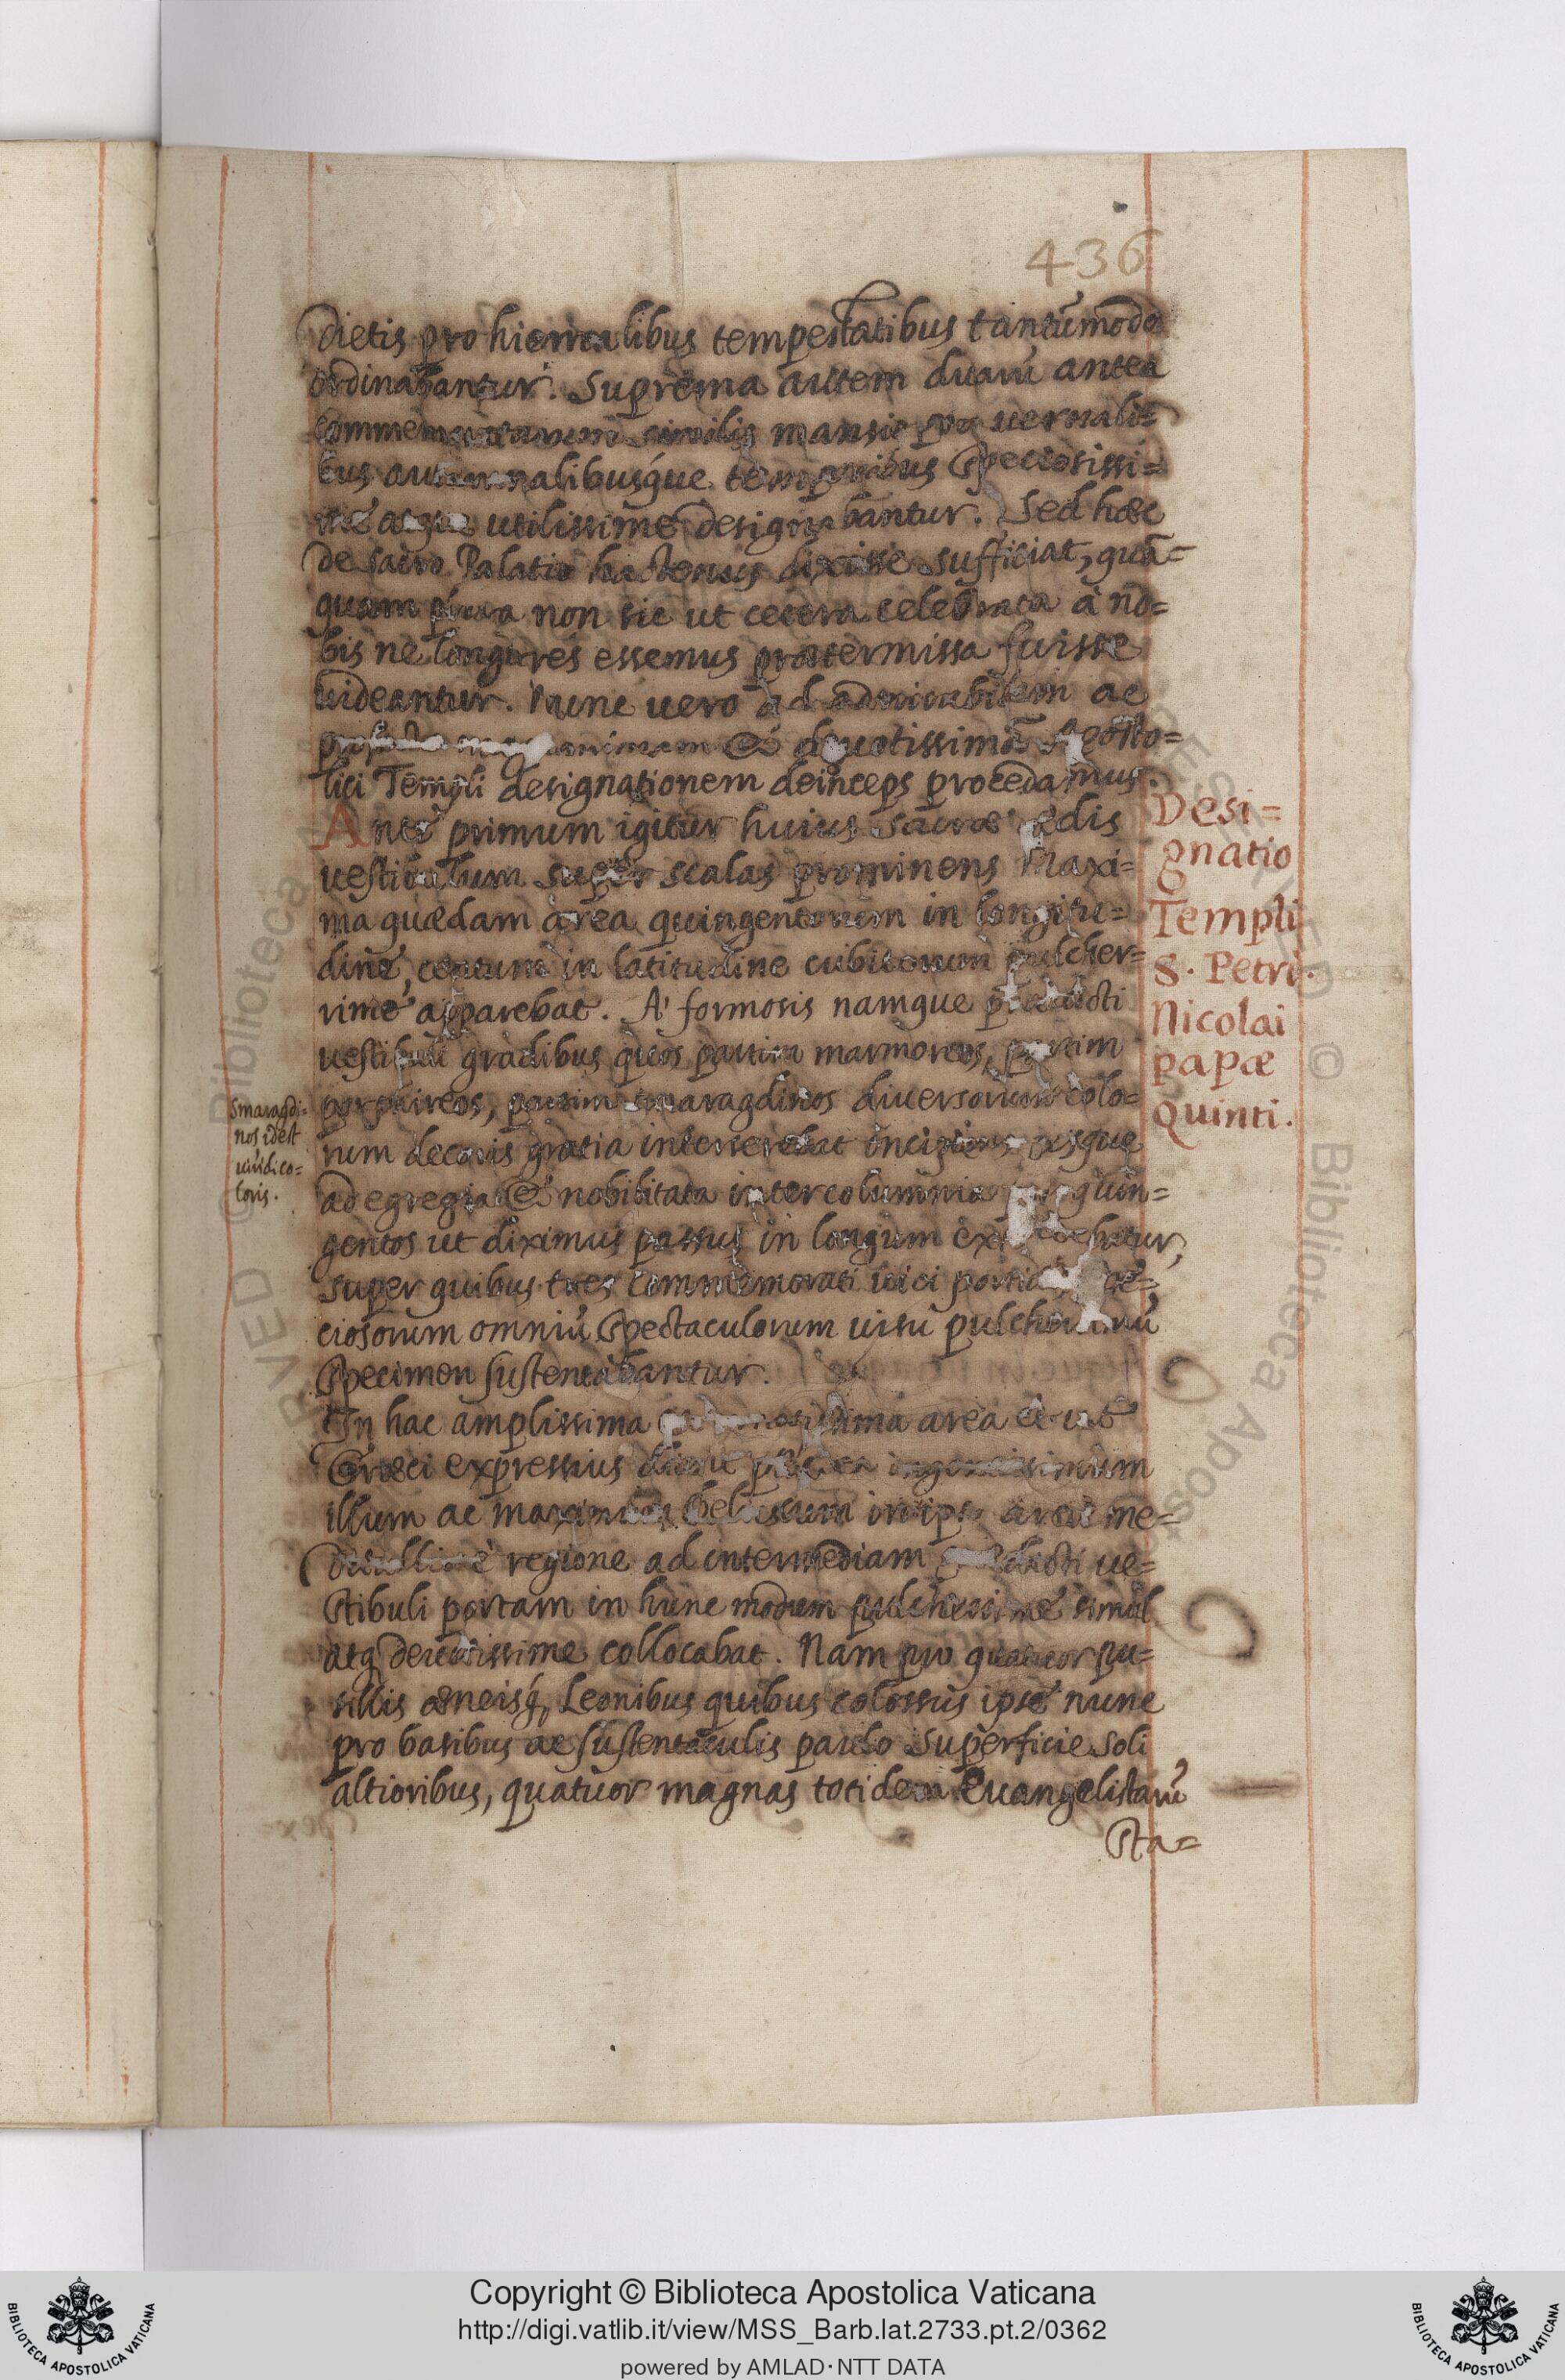 436
dictis pro hiemalibus tempestatibus tantũmodo
ordinabantur. Suprema autem duarũ antea
commemoratarum similis mansio pro uernali=
bus autumnalibusq́ue temporibus speciosissi=
me atque utilissime designabantur. Sed hæc
de sacro Palatio hactenus dixisse sufficiat, quã=
quam plura non sic ut cetera celebrata à no=
bis ne longiores essemus prætermissa fuisse
uideantur. Nunc uero ad admirabilem ac
& deuotissimã Aposto=
lici Templi designationem deinceps procedamus.
Ante primum igitur huius sacræ ædis
uestibulum super scalas prominens maxi=
ma quædam area quingentorum in longitu=
dine, centum in latitudine cubitorum pulcher=
rime apparebat. A' formosis namque prædicti
uestibuli gradibus quos partim marmoreos, partim
porphireos, partim smaragdinos diuersorum colo=
rum decoris gratia interserebat incipiens usque
ad egregia & nobilitata intercolumnia quin=
gentos ut diximus passus in longum extendebatur,
super quibus tres commemorati uici porticus spe=
ciosorum omniũ spectaculorum uisu pulcherrimũ
specimen sustentabantur.
In hac amplissima area & ut
Græci expressius dicunt platea ingentissimum
illum ac maximum Obeliscum in ipso areæ me=
regione ad intermediam prædicti ue=
stibuli portam in hunc modum pulcherrime simul
atq́ decentissime collocabat. Nam pro quatuor pu=
sillis æneisq́ Leonibus quibus colossus ipse nunc
pro basibus ac sustentaculis paulo superficie soli
altioribus, quatuor magnas totidem Euangelistarũ
sta=
Desi=
gnatio
Templi
S. Petri.
Nicolai
papæ
Quinti.
Smaragdi=
nos idest
uiridi co=
loris.
Copyright © Biblioteca Apostolica Vaticana
http://digi.vatlib.it/view/MSS_Barb.lat.2733.pt.2/0362
powered by AMLAD·NTT DATA
BIBLIOTECA APOSTOLICA VATICANA
BIBLIOTECA APOSTOLICA VATICANA